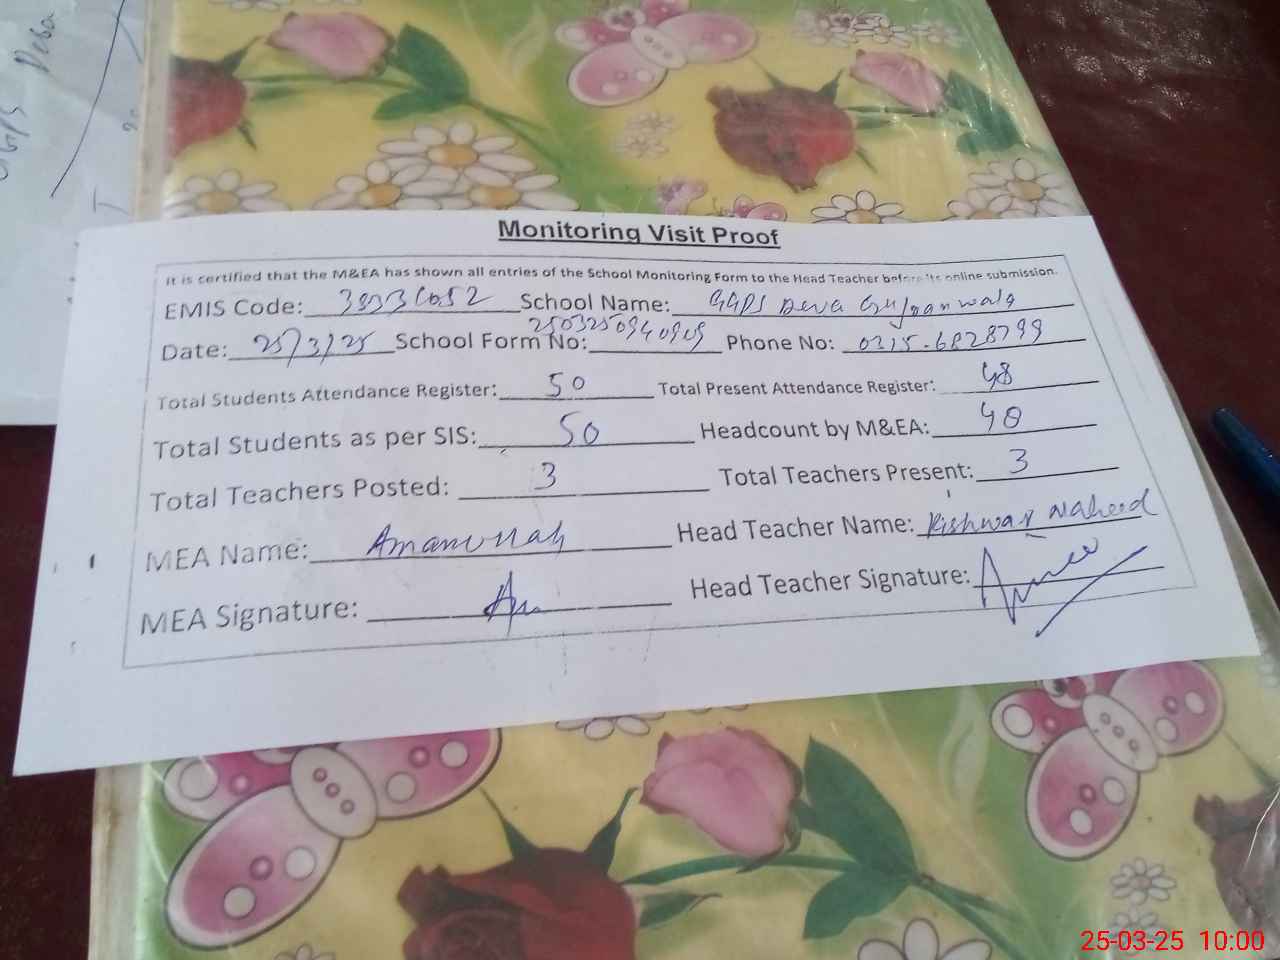 Deba
Monitoring Visit Proof
It is certified that the M&EA has shown all entries of the School Monitoring Form to the Head Teacher before its online submission.
EMIS Code: School Name: GGPS Deva Gujranwala
Date: 25/3/25 School Form No: Phone No: 0315-6828799
Total Students Attendance Register: 50 Total Present Attendance Register: 48
Total Students as per SIS: 50 Headcount by M&EA: 48
Total Teachers Posted: 3 Total Teachers Present: 3
MEA Name: Amanullah Head Teacher Name: Kishwar Naheed
MEA Signature: Head Teacher Signature:
25-03-25 10:00